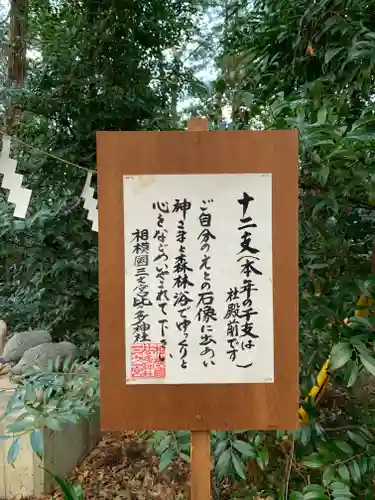 十二支（本年の干支は
社殿前です）
ご自分のえとの石像に出あい
神さまと森林浴でゆっくり
心をなごめ、されて下さい
相模國三之宮比々多神社